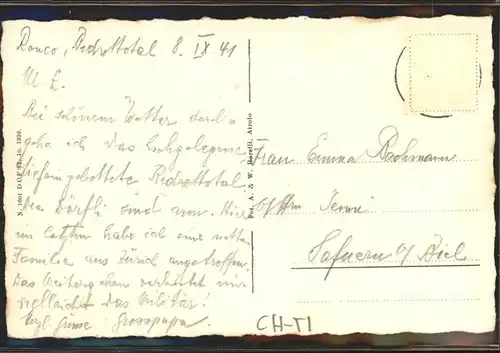 Ronco, Bedrettotal 8. IX 41
M. L.
Bei schönem Wetter durch-
gehe ich das hochgelegene
tiefeingebettete Bedrettotal
Die Dörfli sind nur. Hie
im letzten habe ich eine nette
Familie aus Zürich angetroffen.
Das Weitergehen verbietet mir
vielleicht das Militär!
Herzl. Grüsse: Grosspapa.
N. 1601 D.C.F. 10. 1939.
Fot. A. & W. Borelli, Airolo
Frau Emma Bachmann
b/ Hrn Jenni
Safnern b/ Biel
CH-TI